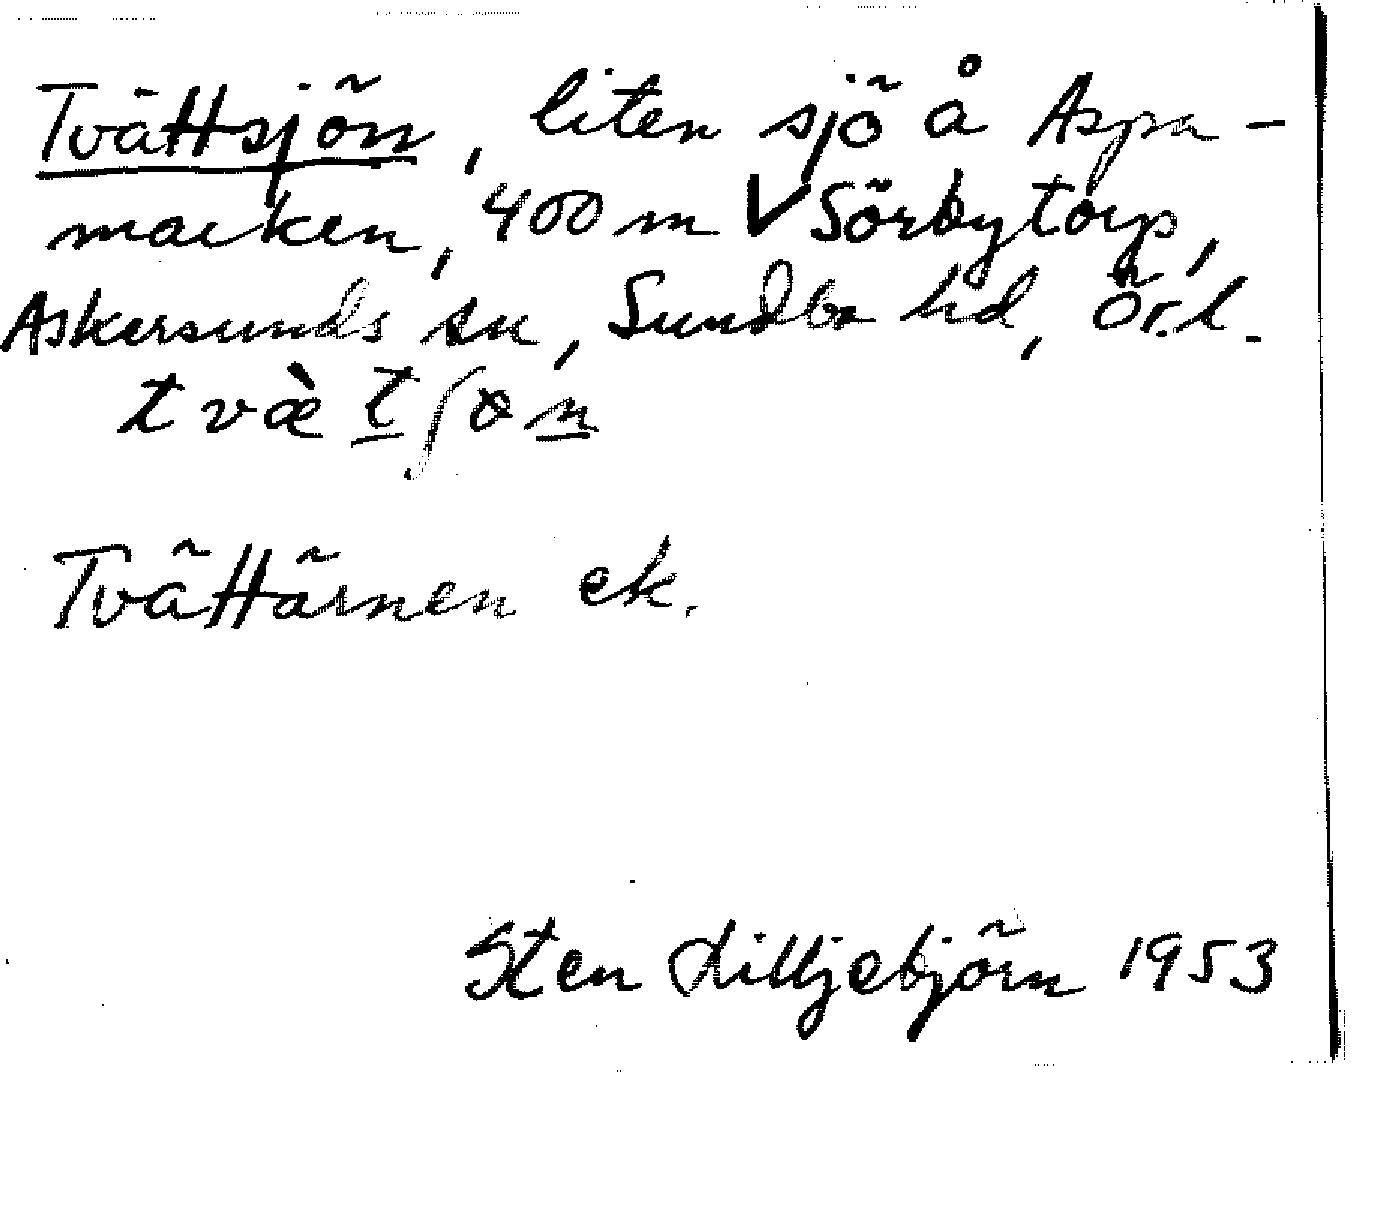 Tvättsjön, liten sjö å Aspa-
marken, 400 m V Sörbytorp,
Askersunds sn, Sundbo hd, Ör. l.
tvæ̀t̲ʃøn̲
Tvättärnen ek.
Sten Lilljebjörn 1953